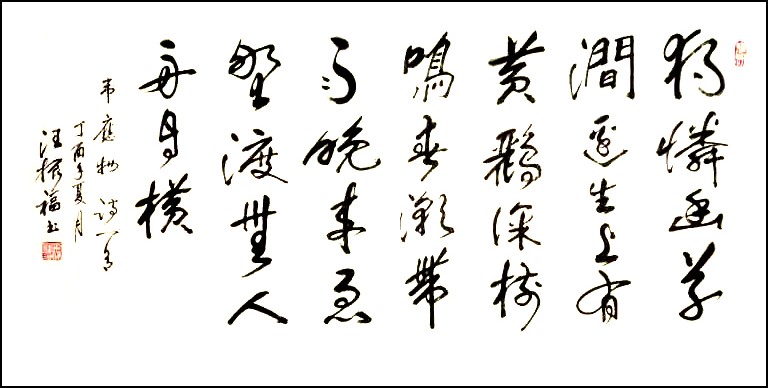 獨憐幽草
澗邊生上有
黃鸝深樹
鳴春潮帶
雨晚來急
野渡無人
舟自橫
韋應物詩一首
丁酉年夏月
汪福书